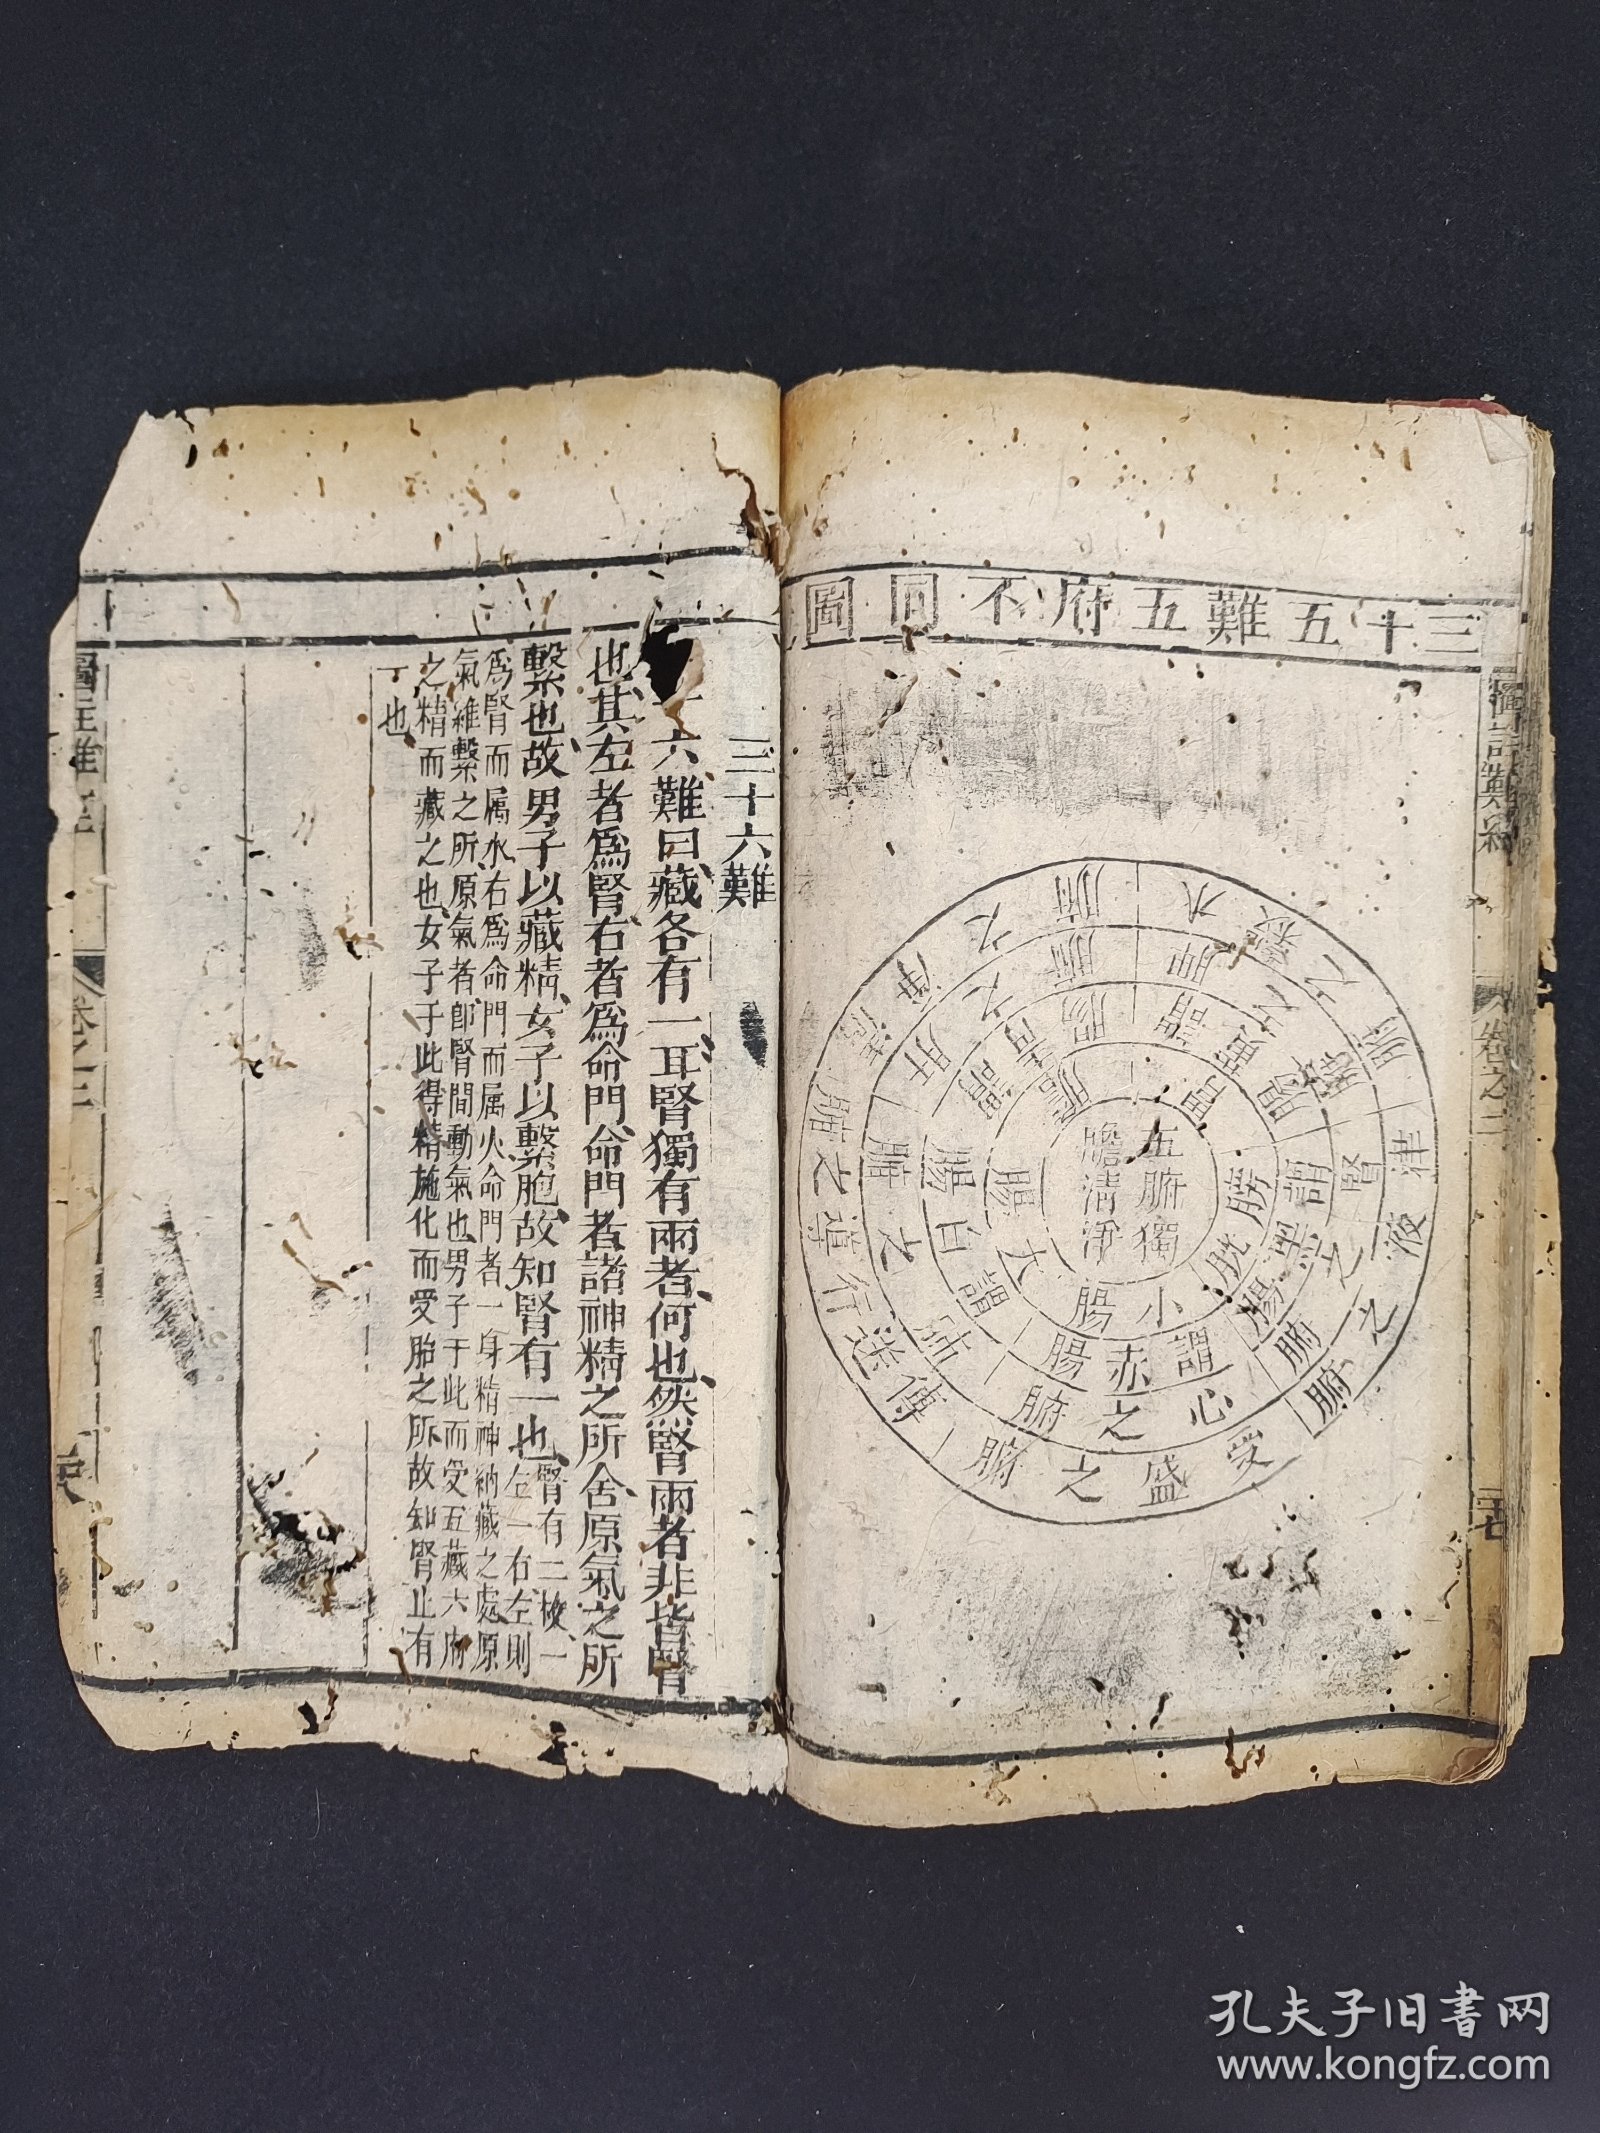 三十五難五府不同圖
五腑獨
膽清淨
小腸
大腸
膀胱
謂赤腸
謂白腸
謂黑腸
心之腑
肺之腑
腎之腑
受盛之腑
傳送行導之腑
津液之腑
水穀之腑
三十六難
六難曰藏各有一耳腎獨有兩者何也然腎兩者非皆腎
也其左者爲腎右者爲命門命門者諸神精之所舍原氣之所
繫也故男子以藏精女子以繫胞故知腎有一也腎有二枚一
左一右左則
爲腎而属水右爲命門而属火命門者一身精神納藏之處原
氣維繫之所原氣者卽腎間動氣也男子于此而受五藏六府
之精而藏之也女子于此得精施化而受胎之所故知腎止有
一也
卷之三
卷之二
孔夫子旧书网
www.kongfz.com